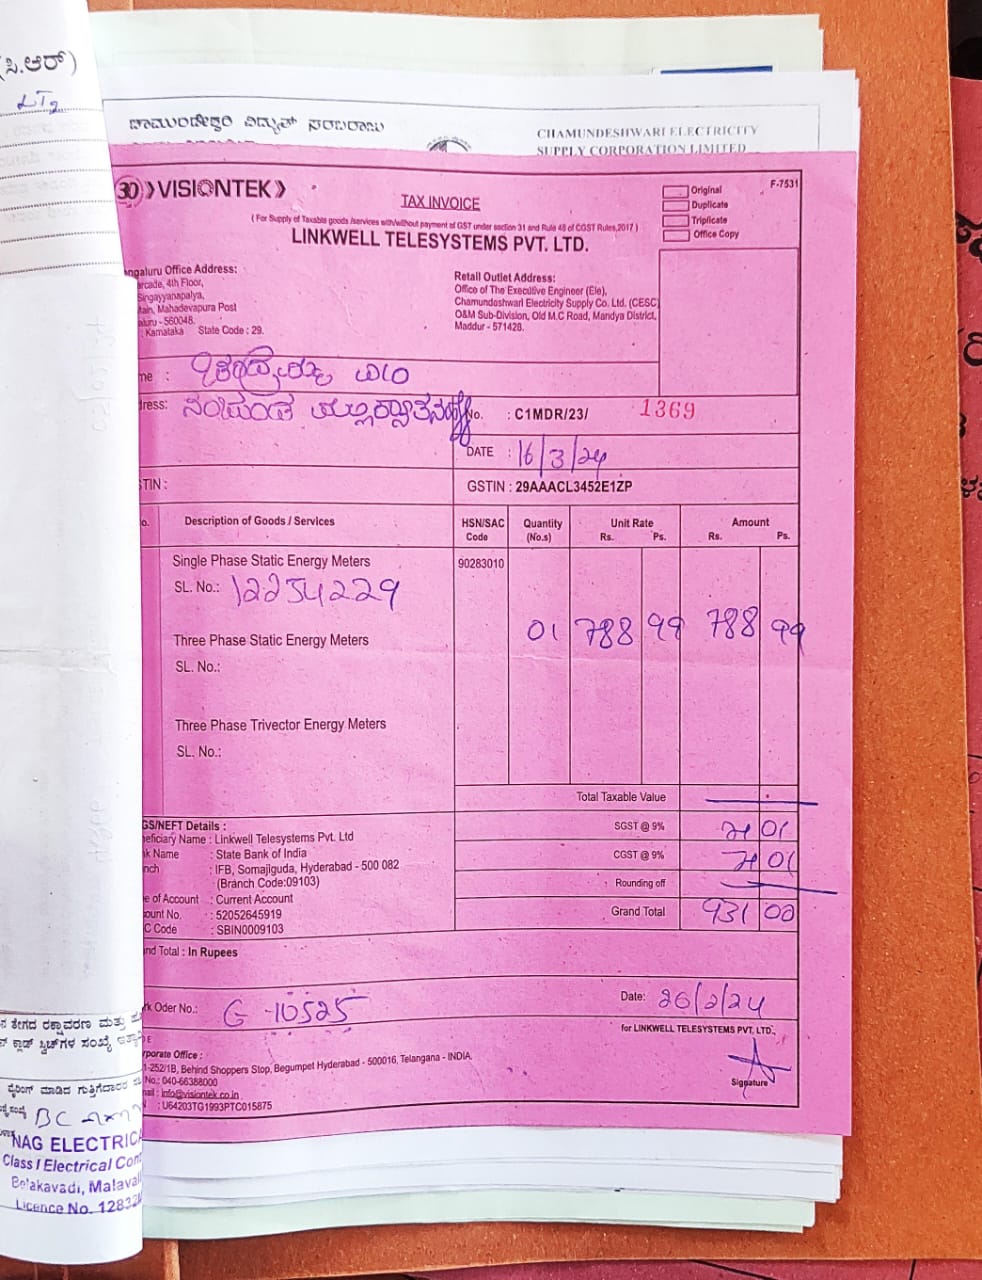 (ಸಿ.ಆರ್)
LT2
ಚಾಮುಂಡೇಶ್ವರಿ ವಿದ್ಯುತ್ ಸರಬರಾಜು
CHAMUNDESHWARI ELECTRICITY
SUPPLY CORPORATION LIMITED
30 VISIONTEK
TAX INVOICE
( For Supply of Taxable goods /services with/without payment of GST under section 31 and Rule 48 of CGST Rules,2017 )
LINKWELL TELESYSTEMS PVT. LTD.
F-7531
Original
Duplicate
Triplicate
Office Copy
ngaluru Office Address:
rcade, 4th Floor,
Singayyanapalya,
ain, Mahadevapura Post
aluru - 560048.
Karnataka State Code : 29.
Retail Outlet Address:
Office of The Executive Engineer (Ele),
Chamundeshwari Electricity Supply Co. Ltd. (CESC)
O&M Sub-Division, Old M.C Road, Mandya District,
Maddur - 571428.
me :
ress:
No. : C1MDR/23/ 1369
DATE : 16/3/24
TIN :
GSTIN : 29AAACL3452E1ZP
o. Description of Goods / Services HSN/SAC Code Quantity (No.s) Unit Rate Rs. Ps. Amount Rs. Ps.
Single Phase Static Energy Meters 90283010
SL. No.: 12254229
01 788 99 788 99
Three Phase Static Energy Meters
SL. No.:
Three Phase Trivector Energy Meters
SL. No.:
Total Taxable Value
SGST @ 9% 71 01
CGST @ 9% 71 01
Rounding off
Grand Total 931 00
GS/NEFT Details :
eficiary Name : Linkwell Telesystems Pvt. Ltd
nk Name : State Bank of India
nch : IFB, Somajiguda, Hyderabad - 500 082
(Branch Code:09103)
e of Account : Current Account
ount No. : 52052645919
C Code : SBIN0009103
nd Total : In Rupees
rk Oder No.: G-10525
Date: 26/2/24
for LINKWELL TELESYSTEMS PVT. LTD.,
Signature
rporate Office :
1-252/1B, Behind Shoppers Stop, Begumpet Hyderabad - 500016, Telangana - INDIA.
No.: 040-66388000
ail : info@visiontek.co.in
: U64203TG1993PTC015875
ನ ತೇಗದ ರಕ್ಷಾವರಣ ಮತ್ತು
ಕ್ಲಾಡ್ ಸ್ವಿಚ್‌ಗಳ ಸಂಖ್ಯೆ
ವೈರಿಂಗ್ ಮಾಡಿದ ಗುತ್ತಿಗೆದಾರರ
BC
NAG ELECTRICA
Class I Electrical Con
Belakavadi, Malaval
Licence No. 12832